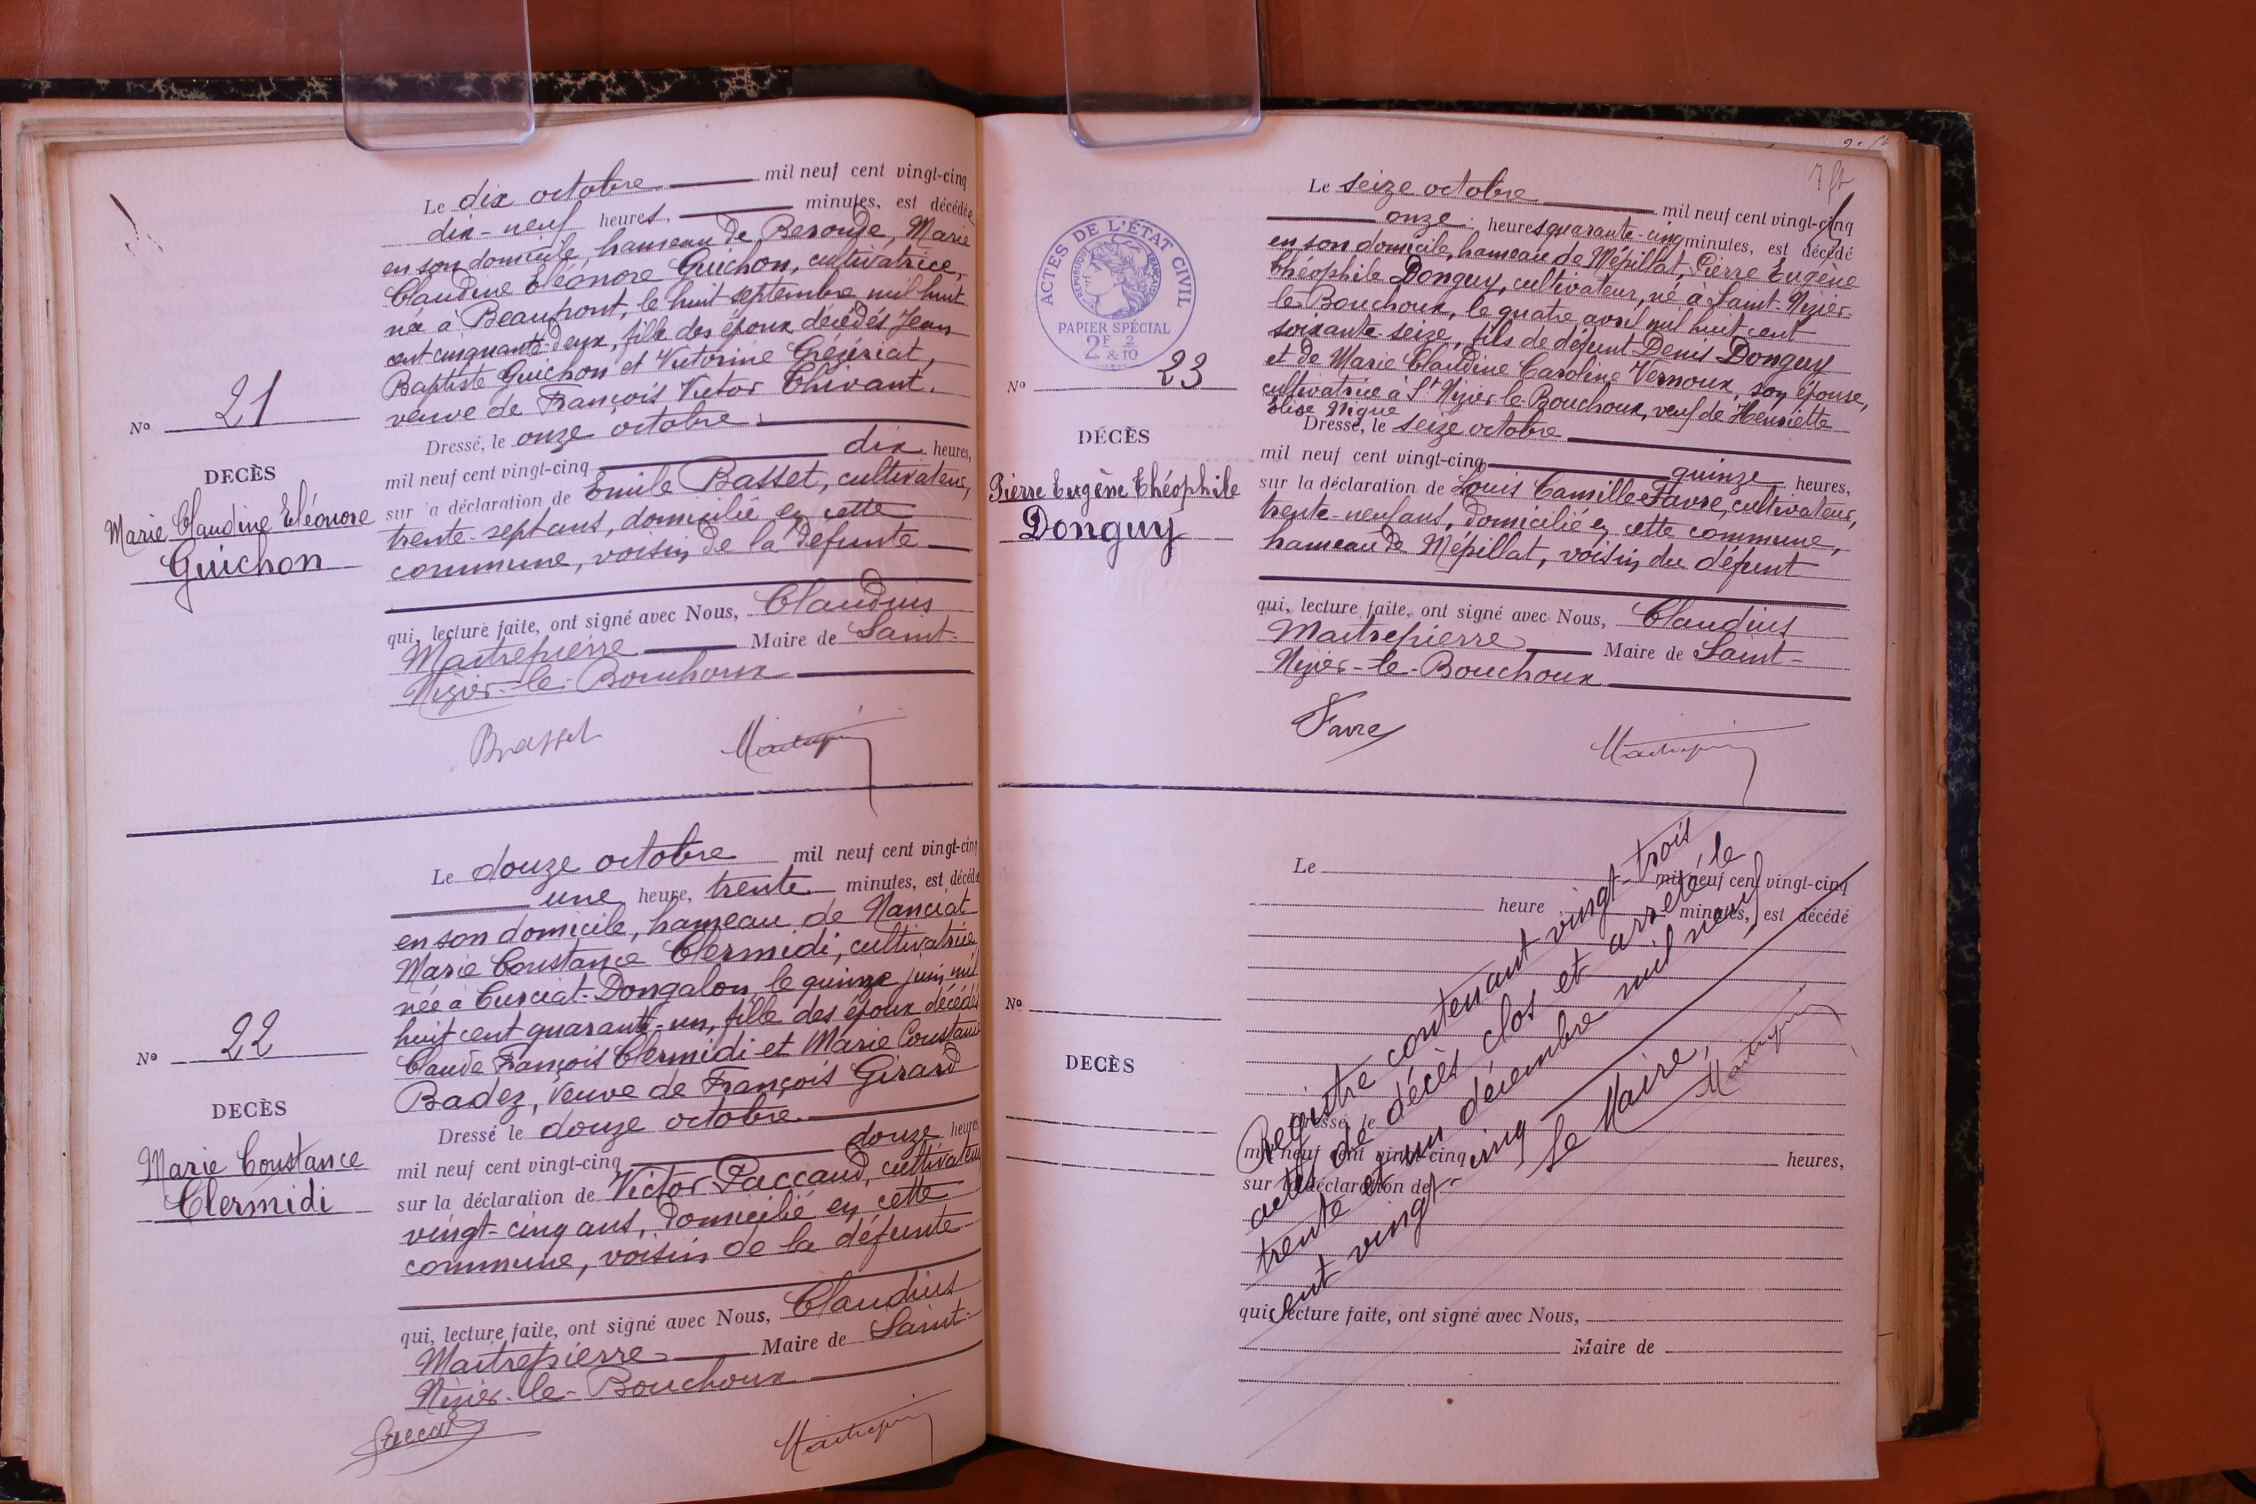 Le dix octobre mil neuf cent vingt-cinq
dix-neuf heures, minutes, est décédée
en son domicile, hameau de Beroude, Marie
Claudine Eléonore Guichon, cultivatrice,
née à Beaupont, le huit septembre mil huit
cent cinquante-deux, fille des époux décédés Jean
Baptiste Guichon et Victorine Grézériat,
veuve de François Victor Chivant.
Dressé, le onze octobre
mil neuf cent vingt-cinq dix heures,
sur la déclaration de Emile Basset, cultivateur,
trente-sept ans, domicilié en cette
commune, voisin de la défunte
qui, lecture faite, ont signé avec Nous, Claudius
Maitrepierre Maire de Saint-
Nizier-le-Bouchoux
Basset
Maitrepierre
No 21
DECÈS
Marie Claudine Eléonore
Guichon
Le douze octobre mil neuf cent vingt-cinq
une heure, trente minutes, est décédée
en son domicile, hameau de Nanciat
Marie Constance Clermidi, cultivatrice
née à Curciat-Dongalon, le quinze juin mil
huit cent quarante-un, fille des époux décédés
Claude François Clermidi et Marie Constance
Badez, veuve de François Girard
Dressé le douze octobre
mil neuf cent vingt-cinq douze heures
sur la déclaration de Victor Paccaud, cultivateur
vingt-cinq ans, domicilié en cette
commune, voisin de la défunte
qui, lecture faite, ont signé avec Nous, Claudius
Maitrepierre Maire de Saint-
Nizier-le-Bouchoux
Maitrepierre
No 22
DECÈS
Marie Constance
Clermidi
Le seize octobre mil neuf cent vingt-cinq
onze heures quarante-cinq minutes, est décédé
en son domicile, hameau de Mépillat, Pierre Eugène
Théophile Donguy, cultivateur, né à Saint-Nizier-
le-Bouchoux, le quatre avril mil huit cent
soixante-seize, fils de défunt Denis Donguy
et de Marie Claudine Caroline Vernoux, son épouse,
cultivatrice à St Nizier le Bouchoux, veuf de Henriette
Elise Nigue
Dressé, le seize octobre
mil neuf cent vingt-cinq quinze heures,
sur la déclaration de Louis Camille Favre, cultivateur,
trente-neuf ans, domicilié en cette commune,
hameau de Mépillat, voisin du défunt
qui, lecture faite, ont signé avec Nous, Claudius
Maitrepierre Maire de Saint-
Nizier-le-Bouchoux
Favre
Maitrepierre
ACTES DE L'ÉTAT CIVIL
RÉPUBLIQUE FRANÇAISE
PAPIER SPÉCIAL
2F 2
& 10
No 23
DÉCÈS
Pierre Eugène Théophile
Donguy
Le mil neuf cent vingt-cinq
heure minutes, est décédé
No
DECÈS
Dressé, le
mil neuf cent vingt-cinq heures,
sur la déclaration de
qui, lecture faite, ont signé avec Nous,
Maire de
Registre contenant vingt-trois
actes de décès clos et arrêté le
trente et un décembre mil neuf
cent vingt-cinq
Le Maire,
Maitrepierre